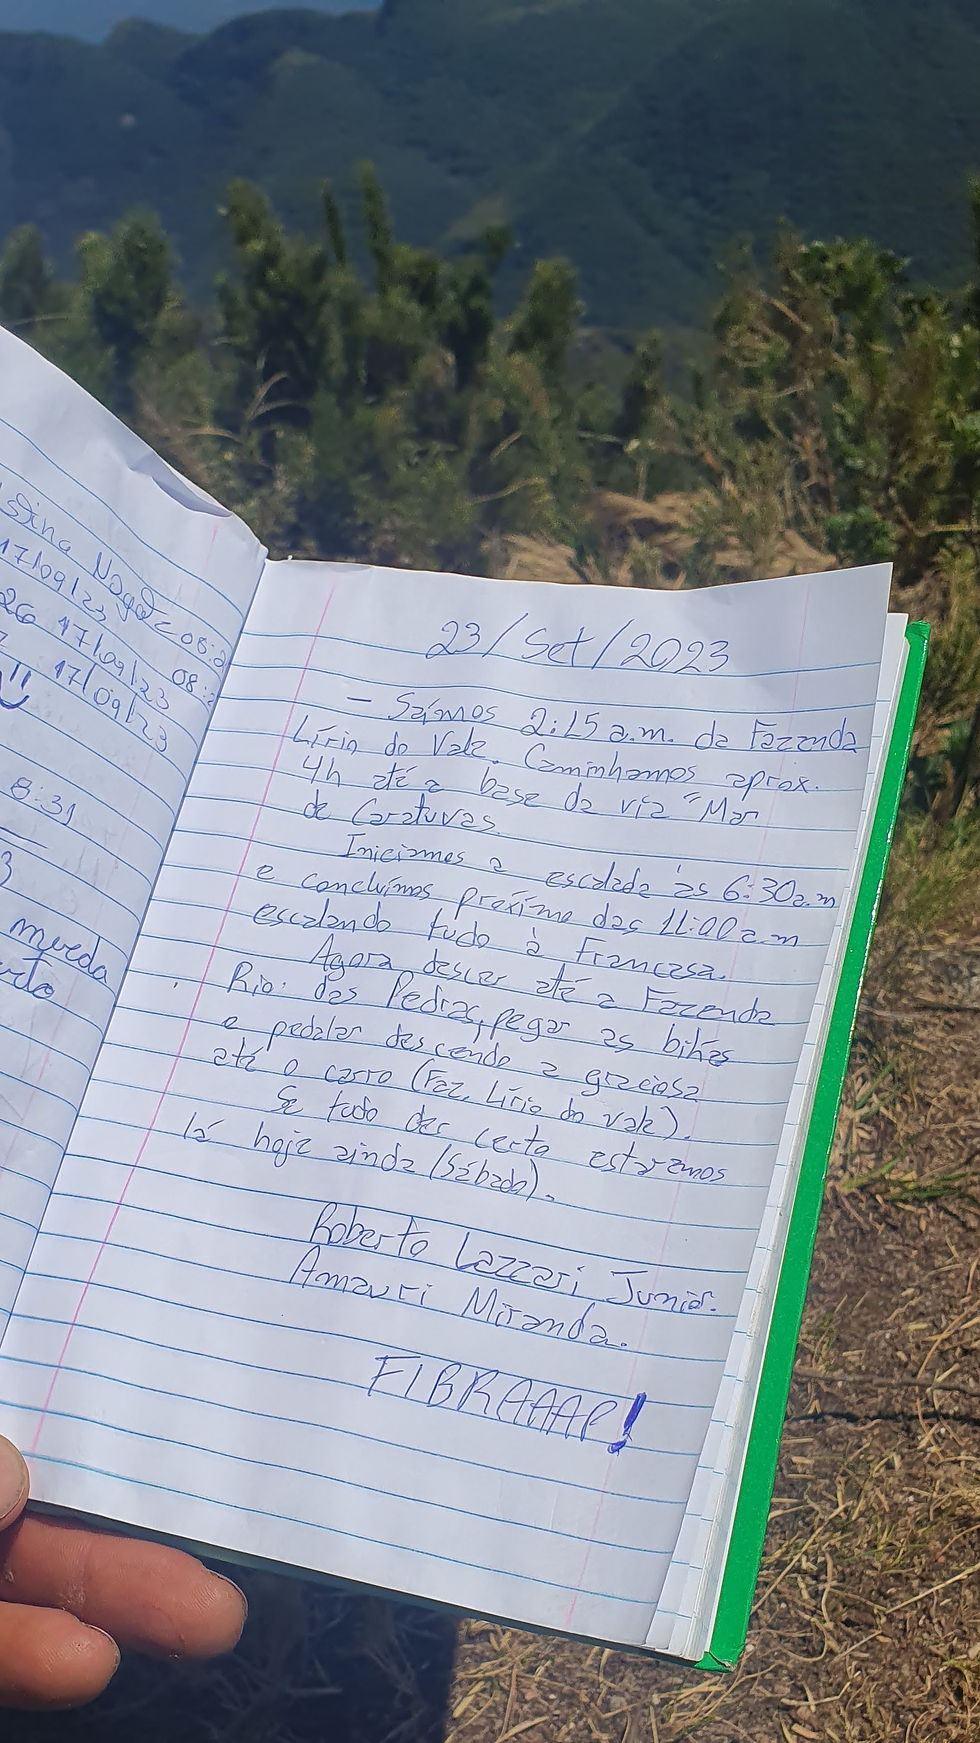 Sing Nogat 08:2
17/09/23
26 17/09/23 08:2
17/09/23
8:31
3
moeda
23/Set/2023
- Saímos 2:15 a.m. da Fazenda
Lírio do Vale. Caminhamos aprox.
4h até a base da via "Mar
de Caratuvas.
Iniciamos a escalada às 6:30a.m
e concluímos próximo das 11:00a.m
escalando tudo à Francesa.
Agora descer até a Fazenda
Rio das Pedras, pegar as bikes
e pedalar descendo a graciosa
até o carro (Faz. Lírio do Vale).
Se tudo der certo estaremos
lá hoje ainda (Sábado).
Roberto Lazzari Junior.
Amauri Miranda.
FIBRAAAP!